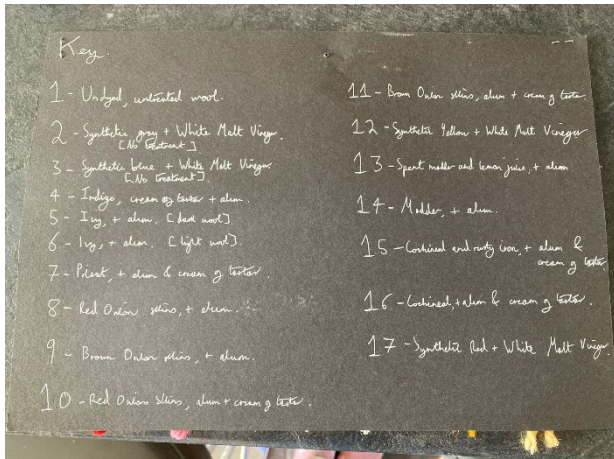 Key.
1 - Undyed, untreated wool.
2 - Synthetic gray + White Malt Vinegar.
[No treatment]
3 - Synthetic blue + White Malt Vinegar
[No treatment].
4 - Indigo, cream of tartar + alum.
5 - Ivy, + alum. [dark wool]
6 - Ivy, + alum. [light wool].
7 - Privet, + alum & cream of tartar.
8 - Red Onion skins, + alum.
9 - Brown Onion skins, + alum.
10 - Red Onion Skins, alum + cream of tartar.
11 - Brown Onion skins, alum + cream of tartar.
12 - Synthetic Yellow + White Malt Vinegar
13 - Spent madder and lemon juice, + alum
14 - Madder, + alum.
15 - Cochineal and rusty iron, + alum &
cream of tartar
16 - Cochineal, + alum & cream of tartar.
17 - Synthetic Red + White Malt Vinegar